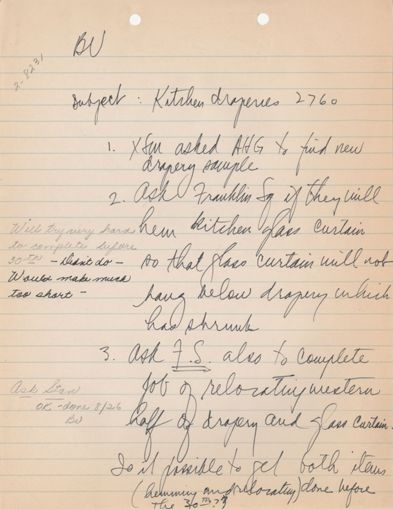 2-8231
BU
Subject: Kitchen draperies 2760
1. XSM asked AHG to find new
drapery sample
2. Ask Franklin Sq if they will
hem kitchen glass curtain
so that glass curtain will not
hang below drapery which
has shrunk
Will try very hard
to complete before
30th - Didn't do -
Would make much
too short -
3. Ask F.S. also to complete
job of relocating western
half of drapery and glass curtain.
Ask Stan
OK - done 8/26
BU
Is it possible to get both items
(hemming and relocating) done before
the 30th??